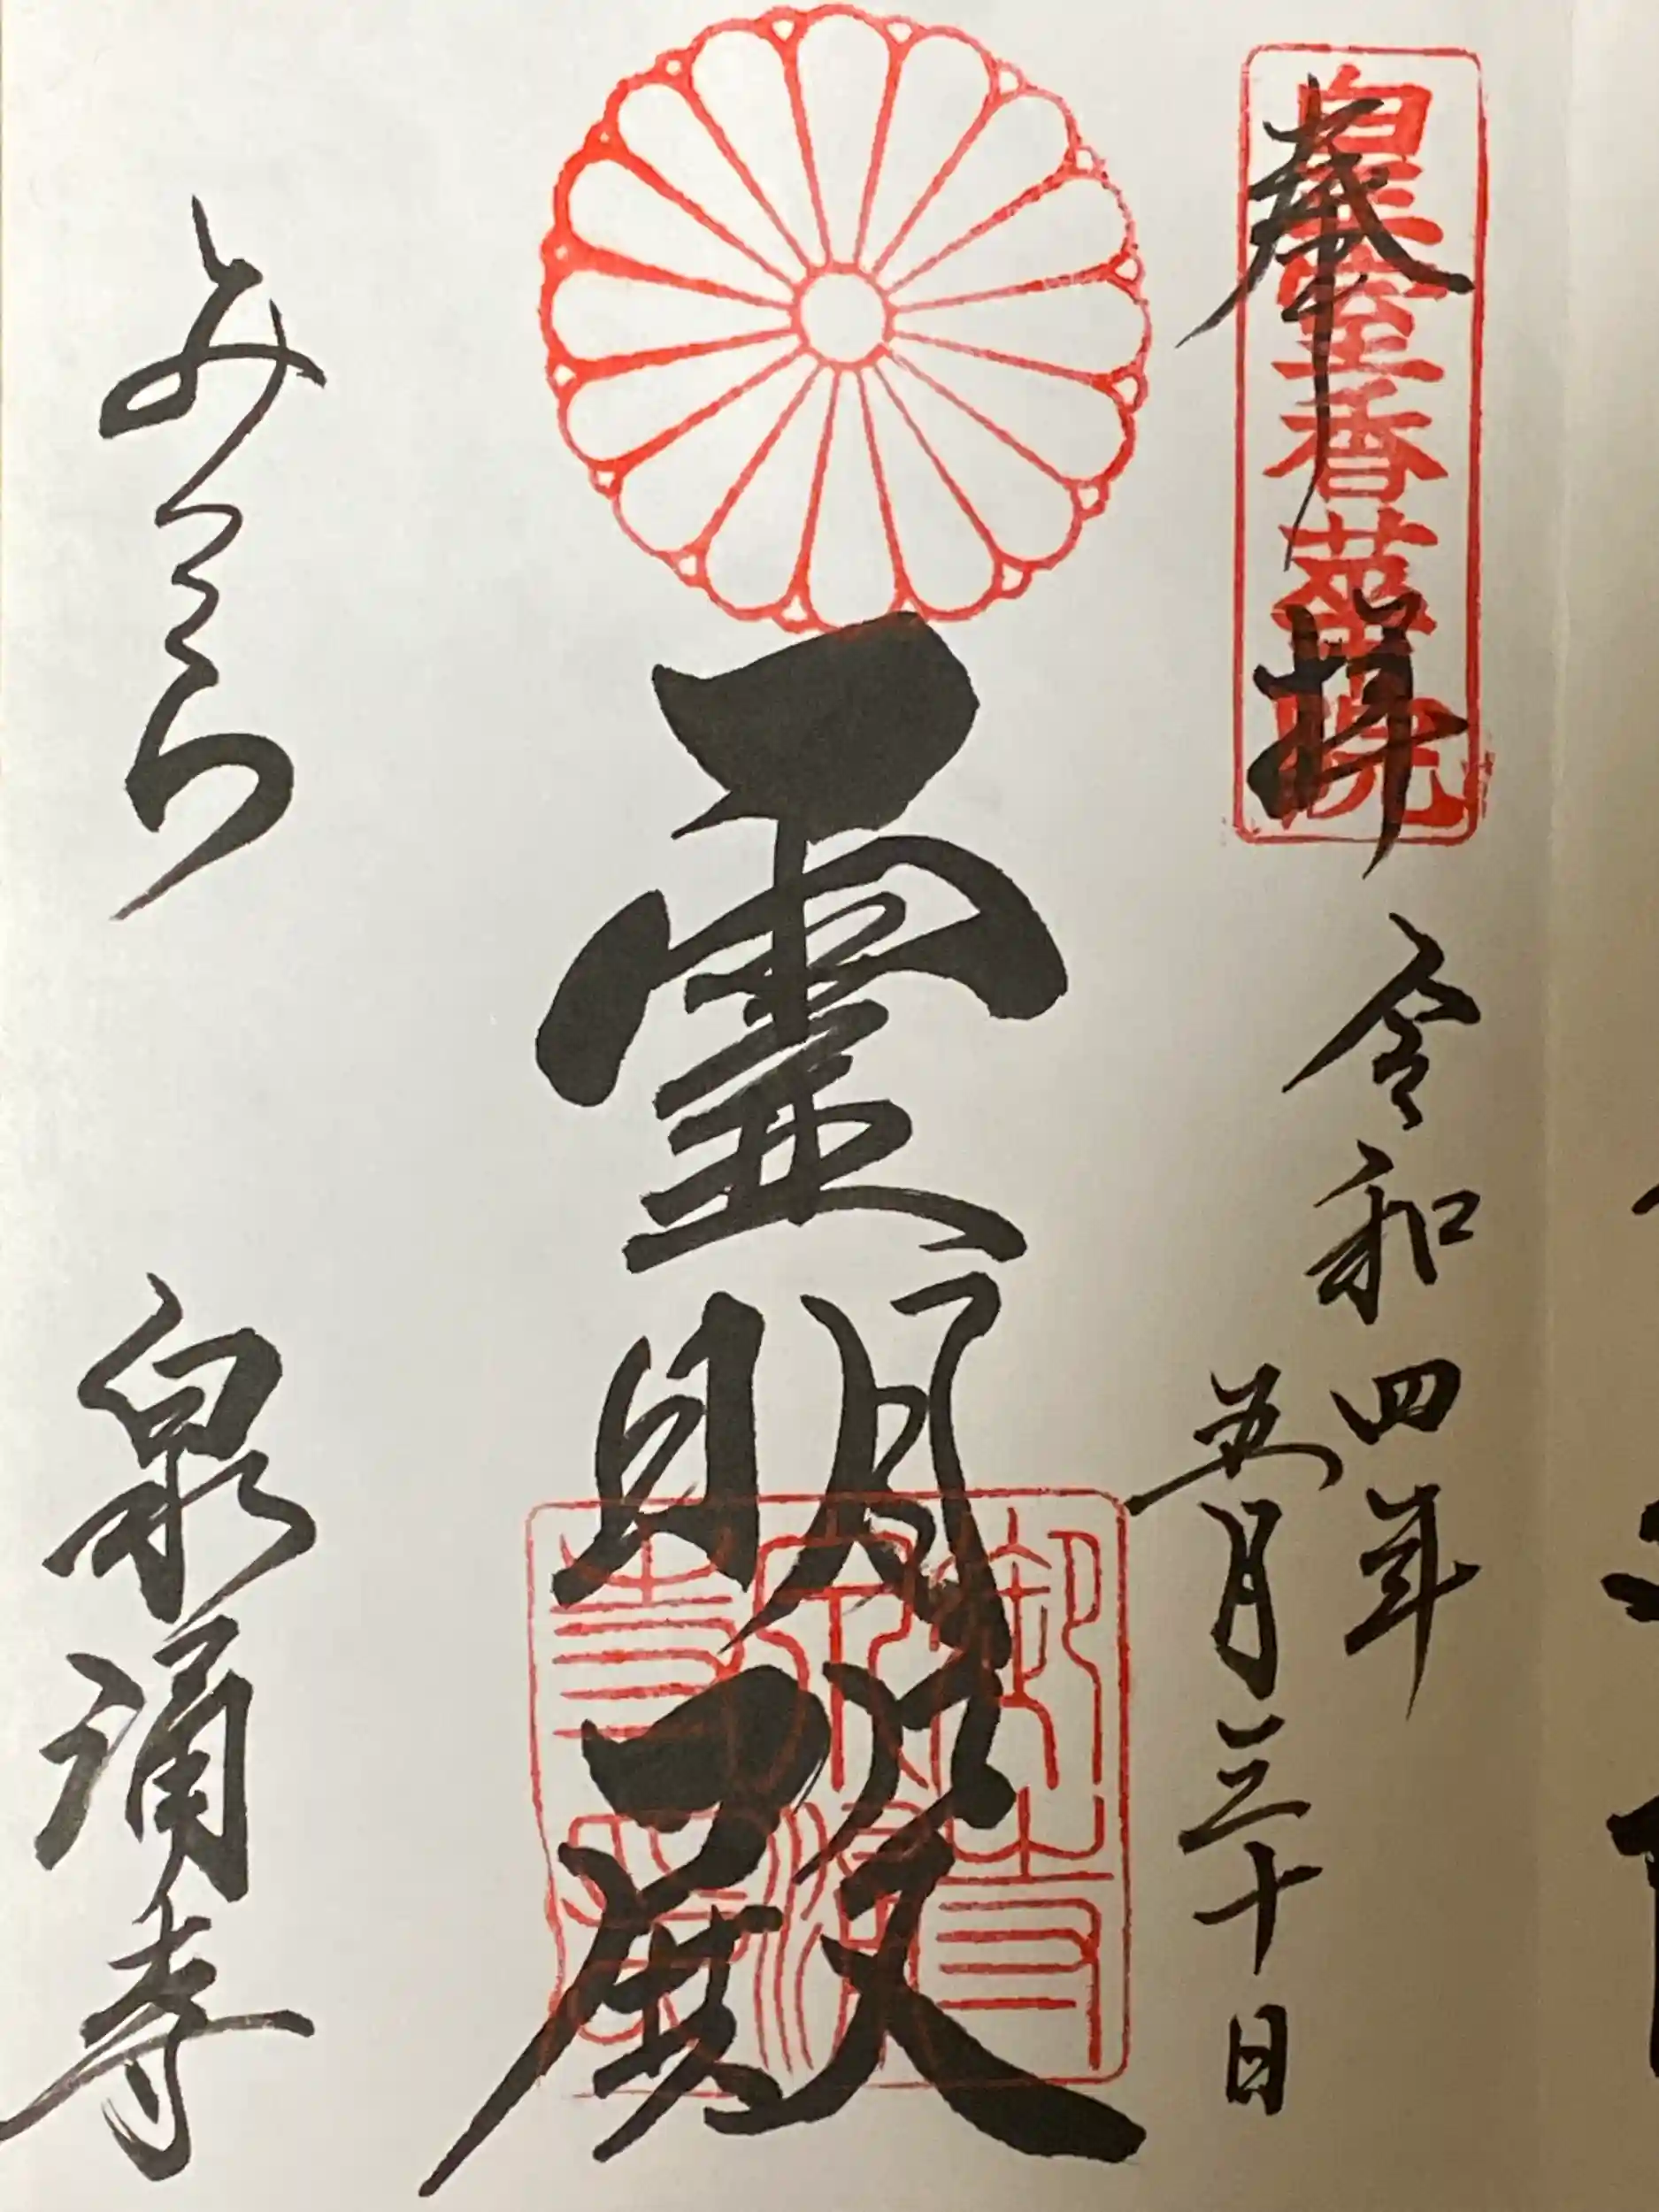 奉拝
皇室香華院
令和四年
五月三十日
霊明殿
御寺泉涌寺
みてら
泉涌寺